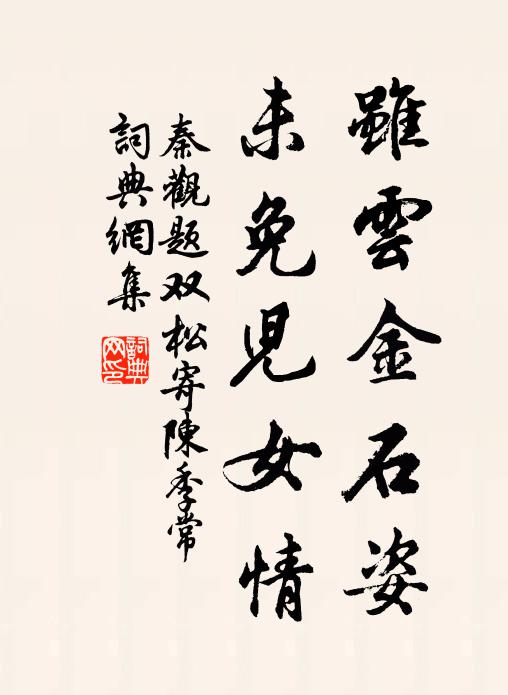 雖雲金石姿
未免兒女情
秦觀題双松寄陳季常
詞典網集
詞典
网印